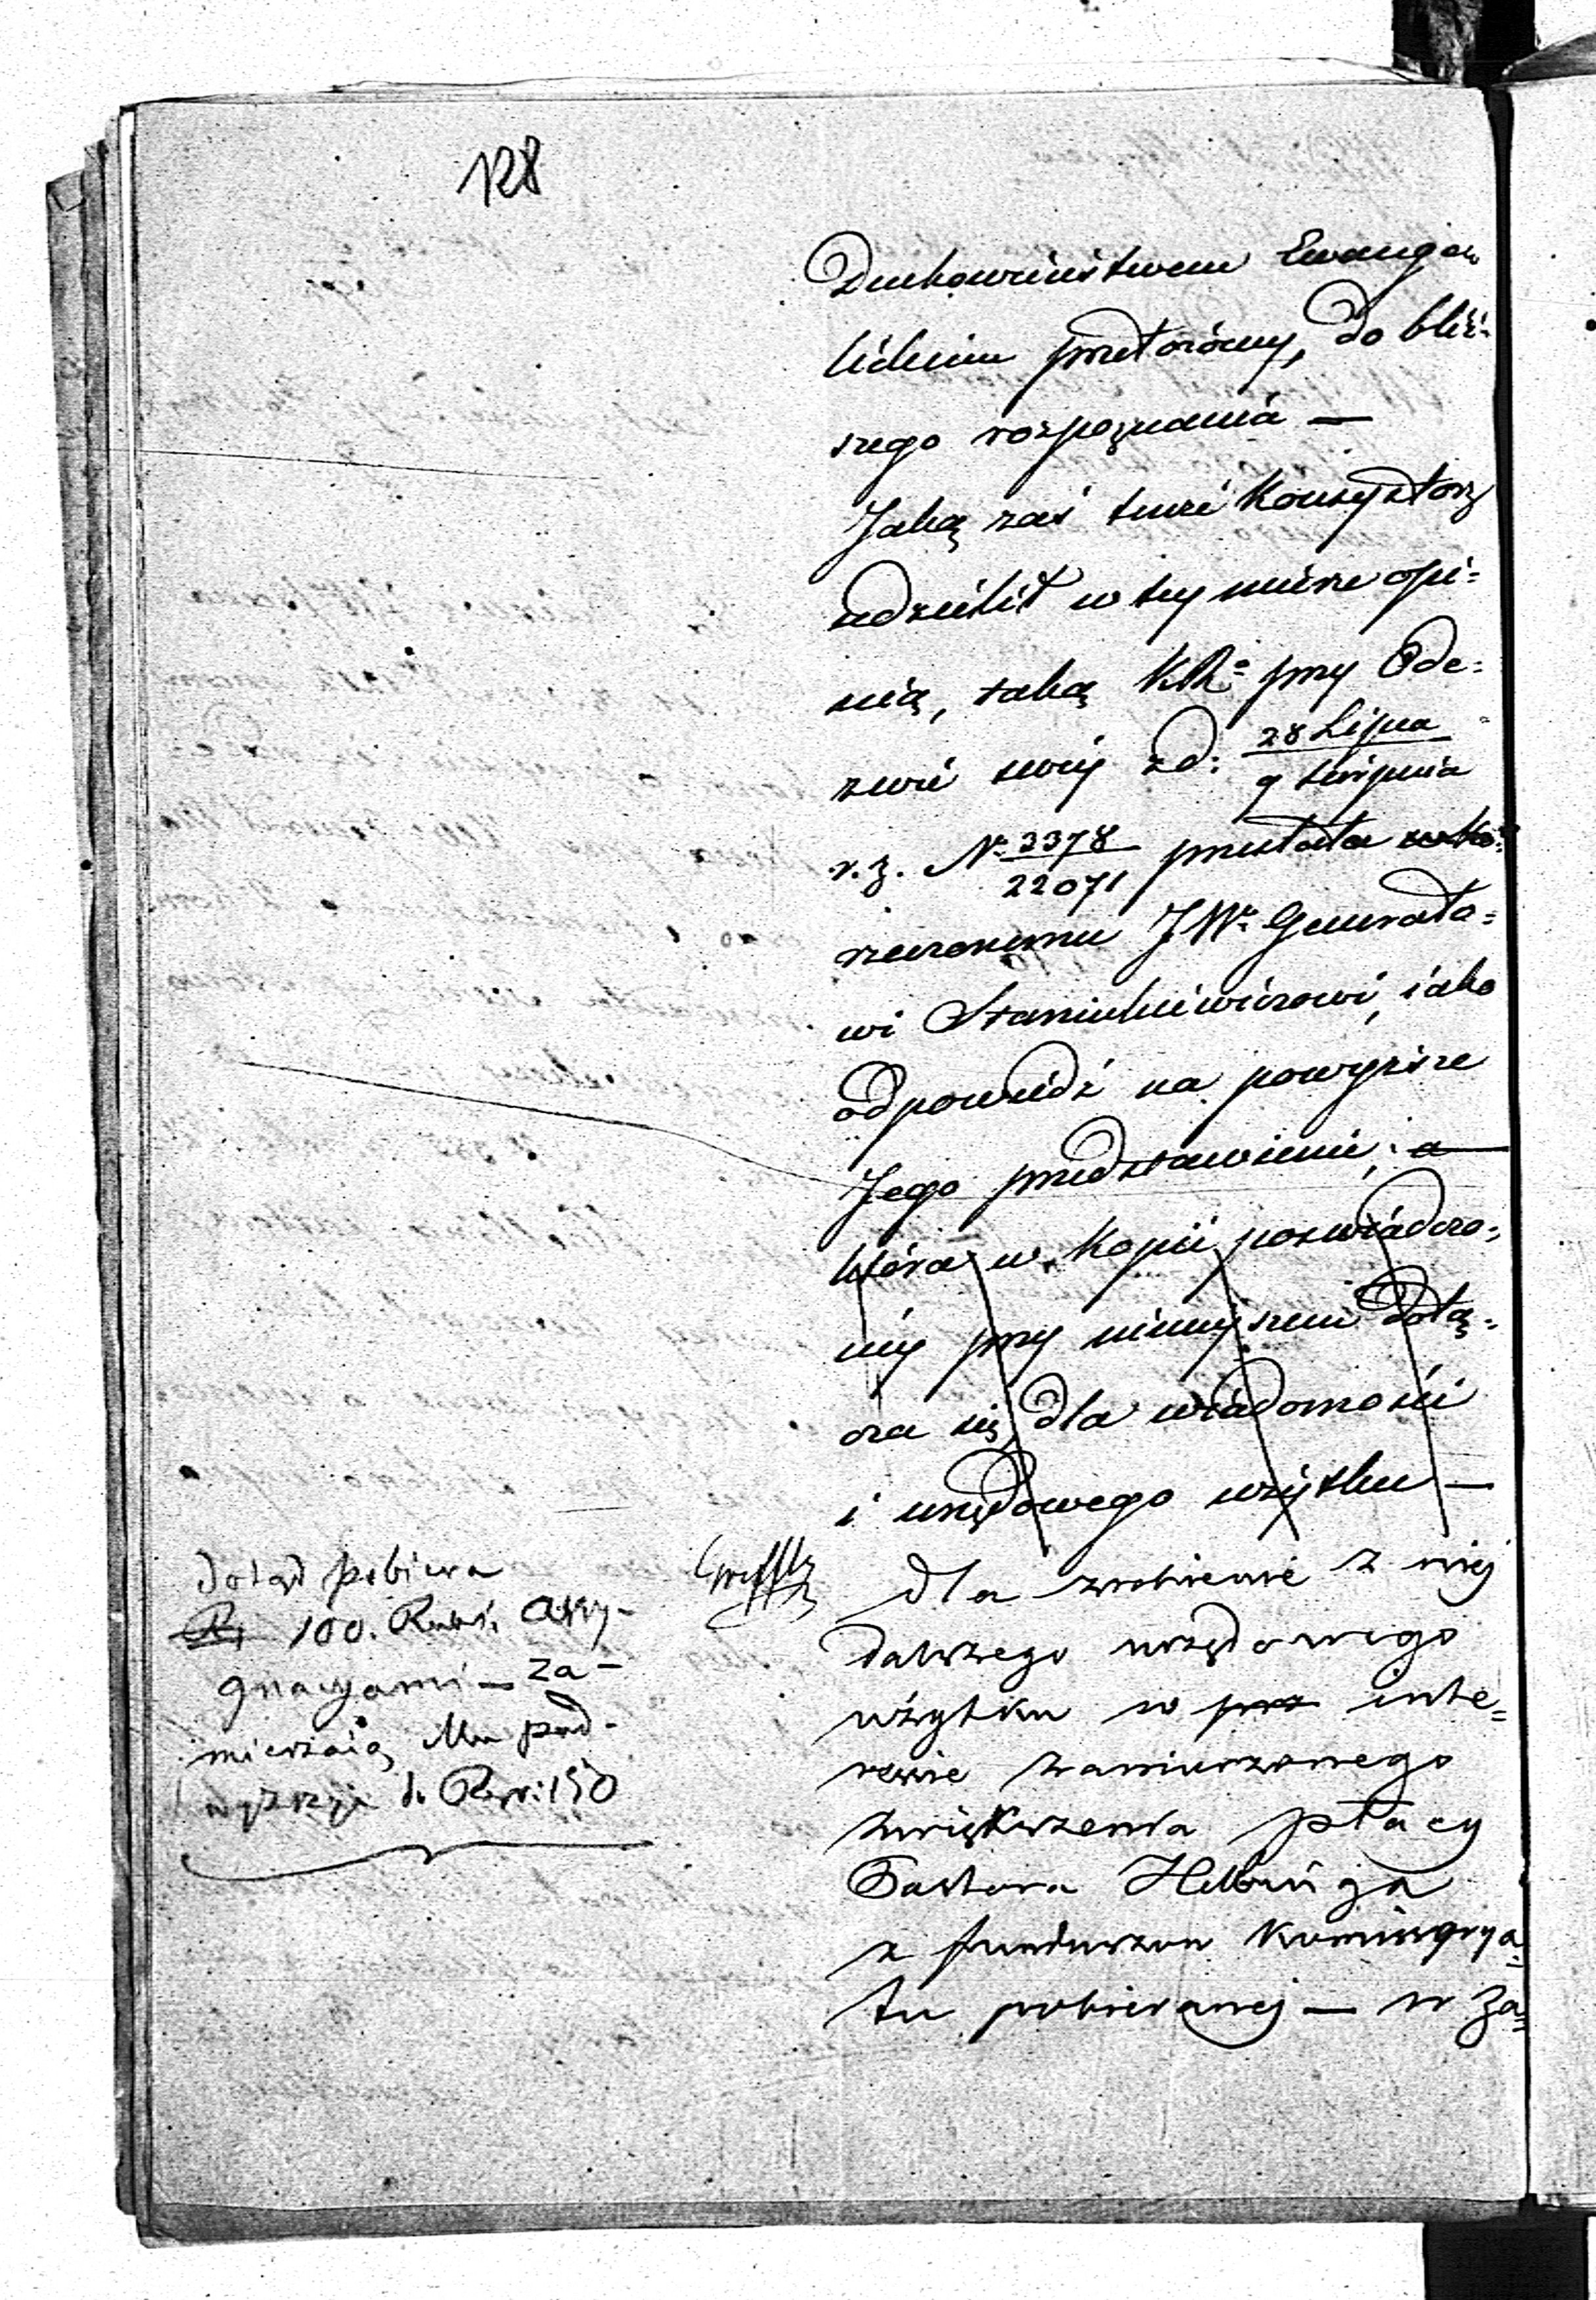 128
Duchowieństwem Ewange-
lickim przełożony, do bliż-
szego rozpoznania —
Jaką zaś tenże Konsystorz
udzielił w tey mierze opi=
nią, taką KR: przy Ode=
zwie swéy z d: 28 Lipca / 9 Sierpnia
r. z. N: 2378 / 22071 przesłała
rzeczonemu JW: Generało=
wi Staniukiewiczowi, iako
odpowiedź na powyższe
Jego przedstawienie; a
która w Kopii poświadczo=
néy przy ninieyszem dołą=
cza się, dla wiadomości
i urzędowego użytku —
dla zrobienia z niej
dalszego urzędowego
użytku w prz inte=
resie zamierzonego
zwiększenia płacy
Pastora Helbinga
z funduszów Komissarya=
tu pobieranej — w Za=
dotąd pobiera
R. 100. Rubli Assy-
gnacyami — za-
mierzaią Mu pod-
wyższyć do 150